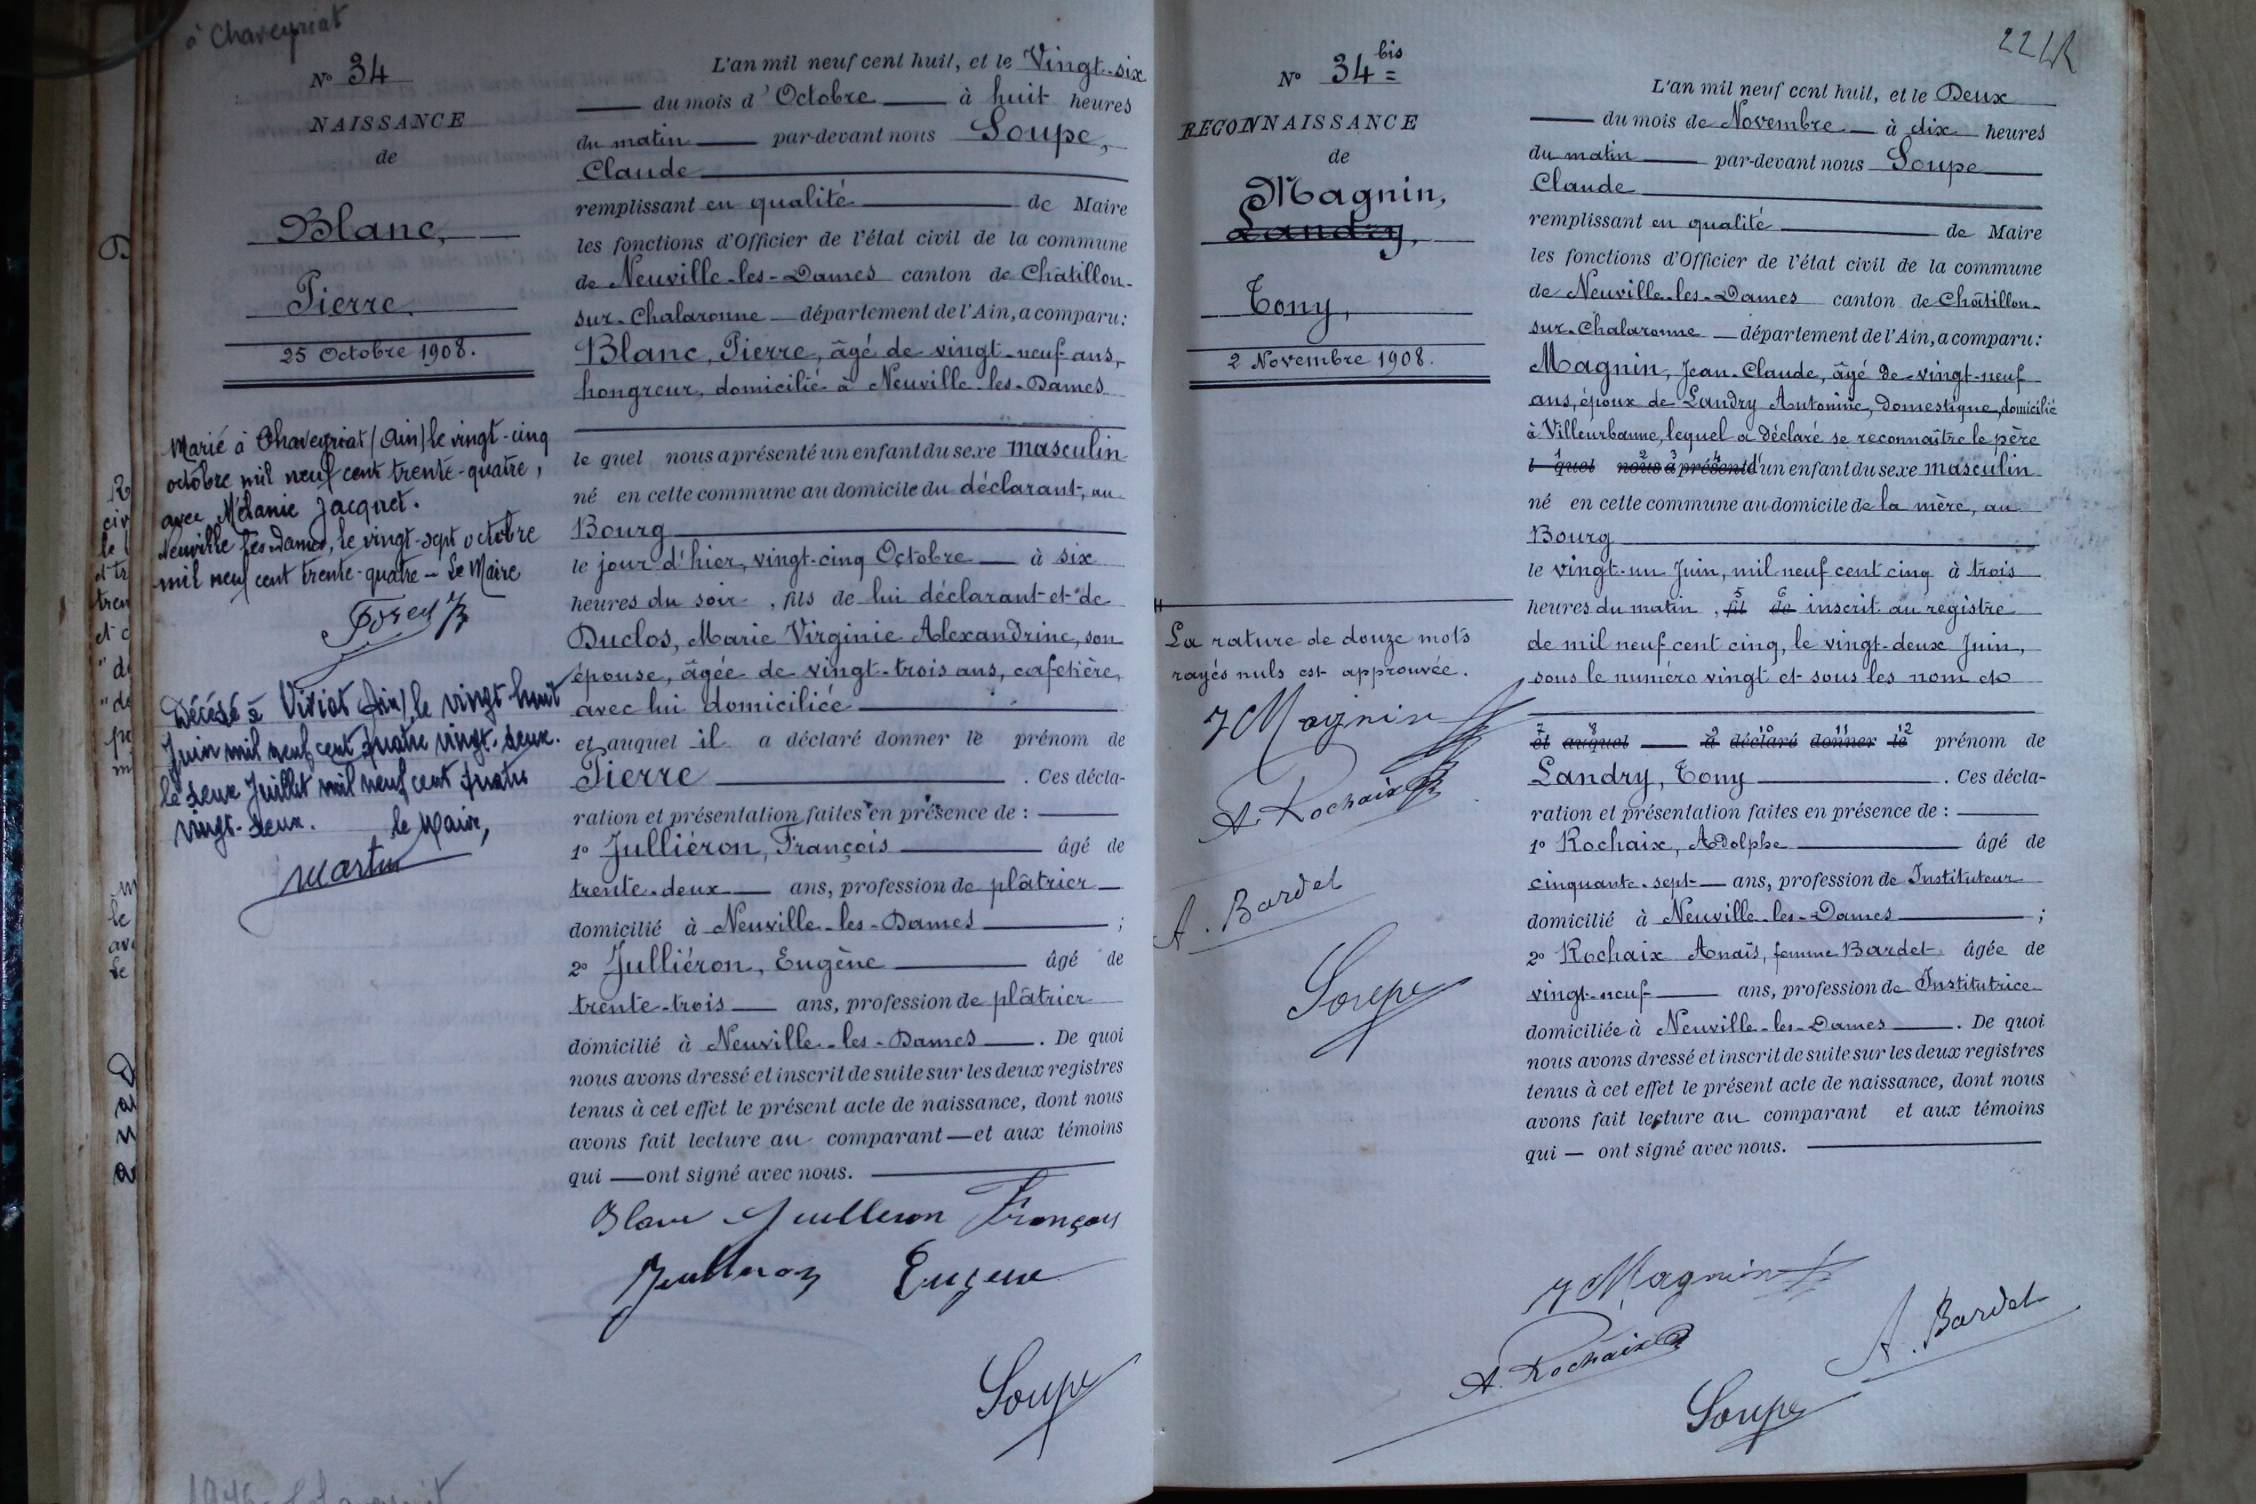 à Chaveyriat
N° 34
NAISSANCE
de
Blanc,
Pierre.
25 Octobre 1908.
Marié à Chaveyriat (Ain) le vingt-cinq
octobre mil neuf cent trente-quatre,
avec Mélanie Jacquet.
Neuville les Dames, le vingt-sept octobre
mil neuf cent trente-quatre - Le Maire
Décédé à Viriat (Ain) le vingt huit
Juin mil neuf cent quatre vingt-deux.
le deux Juillet mil neuf cent quatre
vingt-deux. le Maire,
Martin
L'an mil neuf cent huit, et le Vingt-six
du mois d'Octobre à huit heures
du matin par-devant nous Soupe,
Claude
remplissant en qualité de Maire
les fonctions d'Officier de l'état civil de la commune
de Neuville-les-Dames canton de Châtillon-
sur-Chalaronne département de l'Ain, a comparu:
Blanc, Pierre, âgé de vingt-neuf ans,
hongreur, domicilié à Neuville-les-Dames
le quel nous a présenté un enfant du sexe masculin
né en cette commune au domicile du déclarant, au
Bourg
le jour d'hier, vingt-cinq Octobre à six
heures du soir, fils de lui déclarant et de
Duclos, Marie Virginie Alexandrine, son
épouse, âgée de vingt-trois ans, cafetière,
avec lui domiciliée
et auquel il a déclaré donner le prénom de
Pierre. Ces décla-
ration et présentation faites en présence de :
1° Julliéron, François âgé de
trente-deux ans, profession de plâtrier
domicilié à Neuville-les-Dames ;
2° Julliéron, Eugène âgé de
trente-trois ans, profession de plâtrier
domicilié à Neuville-les-Dames. De quoi
nous avons dressé et inscrit de suite sur les deux registres
tenus à cet effet le présent acte de naissance, dont nous
avons fait lecture au comparant — et aux témoins
qui — ont signé avec nous.
Blanc Juilleron François
Juilleron Eugene
Soupe
224
N° 34 bis
RECONNAISSANCE
de
Magnin,
Landry,
Tony,
2 Novembre 1908.
La rature de douze mots
rayés nuls est approuvée.
J Magnin
A. Rochaix
A. Bardet
Soupe
L'an mil neuf cent huit, et le Deux
du mois de Novembre à dix heures
du matin par-devant nous Soupe
Claude
remplissant en qualité de Maire
les fonctions d'Officier de l'état civil de la commune
de Neuville-les-Dames canton de Châtillon-
sur-Chalaronne département de l'Ain, a comparu:
Magnin, Jean-Claude, âgé de vingt-neuf
ans, époux de Landry Antonine, domestique, domicilié
à Villeurbanne, lequel a déclaré se reconnaître le père
1 2 3 4
l quel nous a présenté d'un enfant du sexe masculin
né en cette commune au domicile de la mère, au
Bourg
le vingt-un Juin, mil neuf cent cinq à trois
5 6
heures du matin, fil de inscrit au registre
de mil neuf cent cinq, le vingt-deux Juin,
sous le numéro vingt et sous les nom et
7 8 9 10 11 12
et auquel a déclaré donner le prénom de
Landry, Tony. Ces décla-
ration et présentation faites en présence de :
1° Rochaix, Adolphe âgé de
cinquante-sept ans, profession de Instituteur
domicilié à Neuville-les-Dames ;
2° Rochaix Anaïs, femme Bardet âgée de
vingt-neuf ans, profession de Institutrice
domiciliée à Neuville-les-Dames. De quoi
nous avons dressé et inscrit de suite sur les deux registres
tenus à cet effet le présent acte de naissance, dont nous
avons fait lecture au comparant et aux témoins
qui — ont signé avec nous.
J Magnin
A. Rochaix
A. Bardet
Soupe